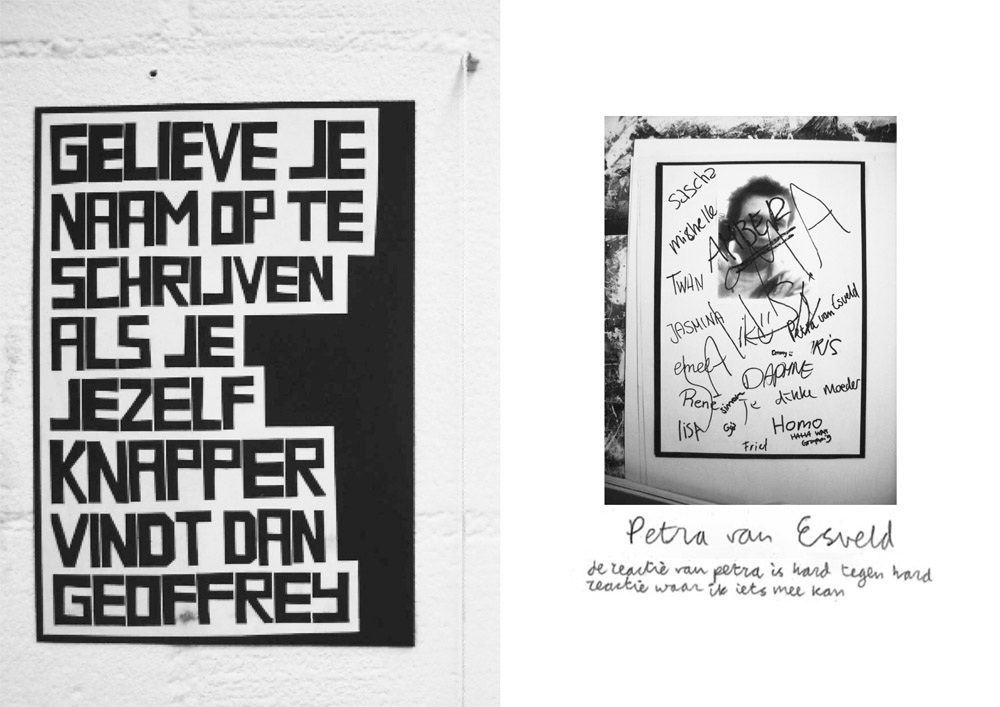 GELIEVE JE
NAAM OP TE
SCHRIJVEN
ALS JE
JEZELF
KNAPPER
VINDT DAN
GEOFFREY
Sascha
mishelle
AMBER
TWAN
JASMINA
Petra van Esveld
IRIS
emel
DAPHNE
René
simon
Je dikke moeder
lisa
Homo
Friel
Petra van Esveld
de reactie van petra is hard tegen hard
reactie waar ik iets mee kan